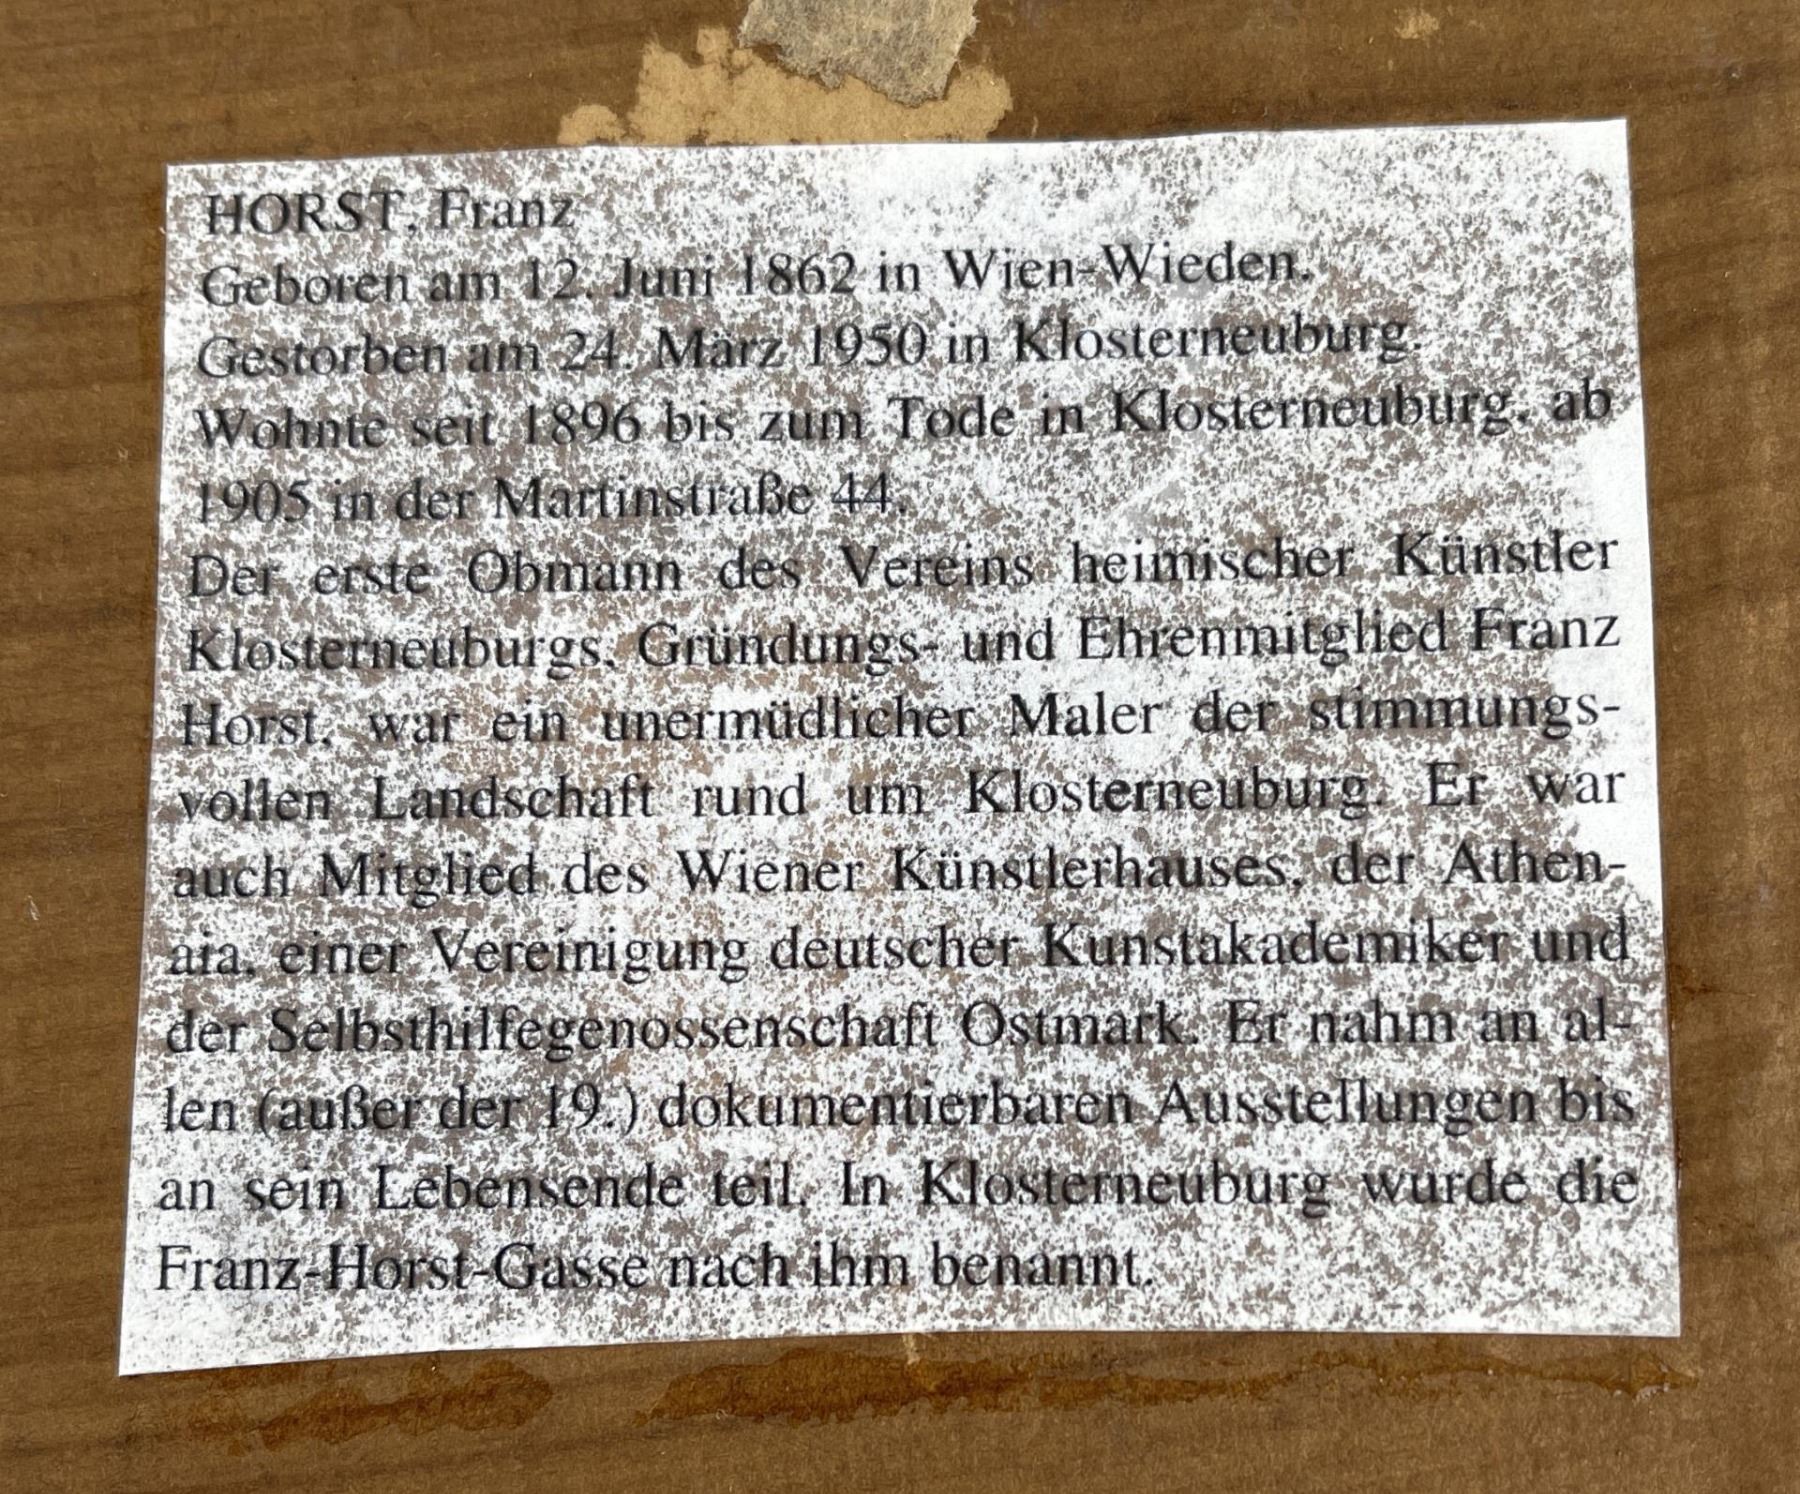 HORST, Franz
Geboren am 12. Juni 1862 in Wien-Wieden.
Gestorben am 24. März 1950 in Klosterneuburg.
Wohnte seit 1896 bis zum Tode in Klosterneuburg, ab
1905 in der Martinstraße 44.
Der erste Obmann des Vereins heimischer Künstler
Klosterneuburgs, Gründungs- und Ehrenmitglied Franz
Horst, war ein unermüdlicher Maler der stimmungs-
vollen Landschaft rund um Klosterneuburg. Er war
auch Mitglied des Wiener Künstlerhauses, der Athen-
aia, einer Vereinigung deutscher Kunstakademiker und
der Selbsthilfegenossenschaft Ostmark. Er nahm an al-
len (außer der 19.) dokumentierbaren Ausstellungen bis
an sein Lebensende teil. In Klosterneuburg wurde die
Franz-Horst-Gasse nach ihm benannt.